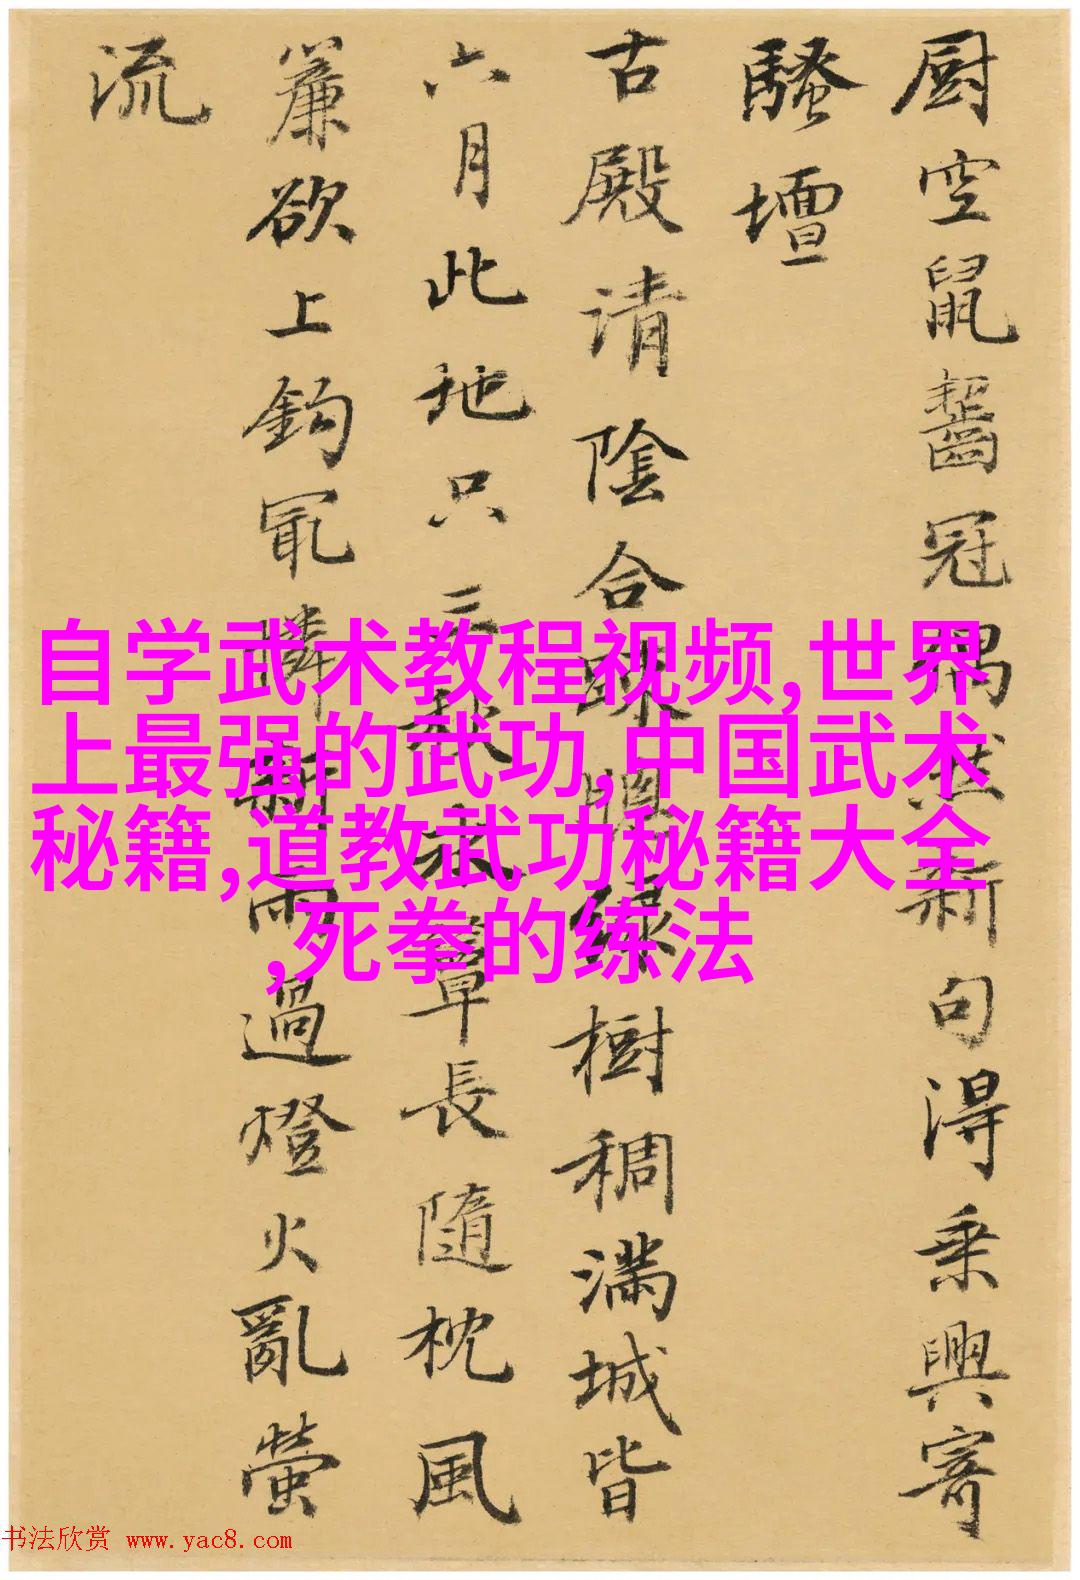 厨空鼠齧冠偶然新句得乘興寄
騷壇
古殿清陰合踈幌緑樹稠滿城皆
六月此地只三秋永簟長隨枕風
簾欲上鉤最憐新雨過燈火亂螢
流
自学武术教程视频,世界
上最强的武功,中国武术
秘籍,道教武功秘籍大全
,死拳的练法
书法欣赏 www.yac8.com